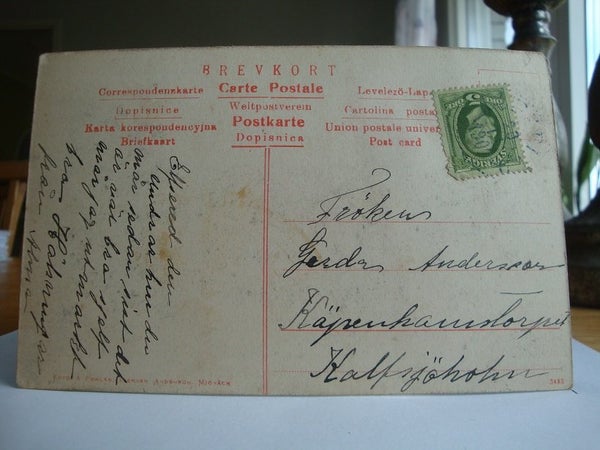 BREVKORT
Correspondenzkarte Carte Postale Levelező-Lap
Dopisnice Weltpostverein Cartolina postale
Karta korespondencyjna Postkarte Union postale univer
Briefkaart Dopisnica Post card
5 ÖRE
SVERIGE
Fröken
Gerda Andersson
Käpenhamstorpet
Kalfsjöholm
undrar hur du
mår sedan sist det
är väl bra själf
mår jag utmärkt
bra
från Anna
3485